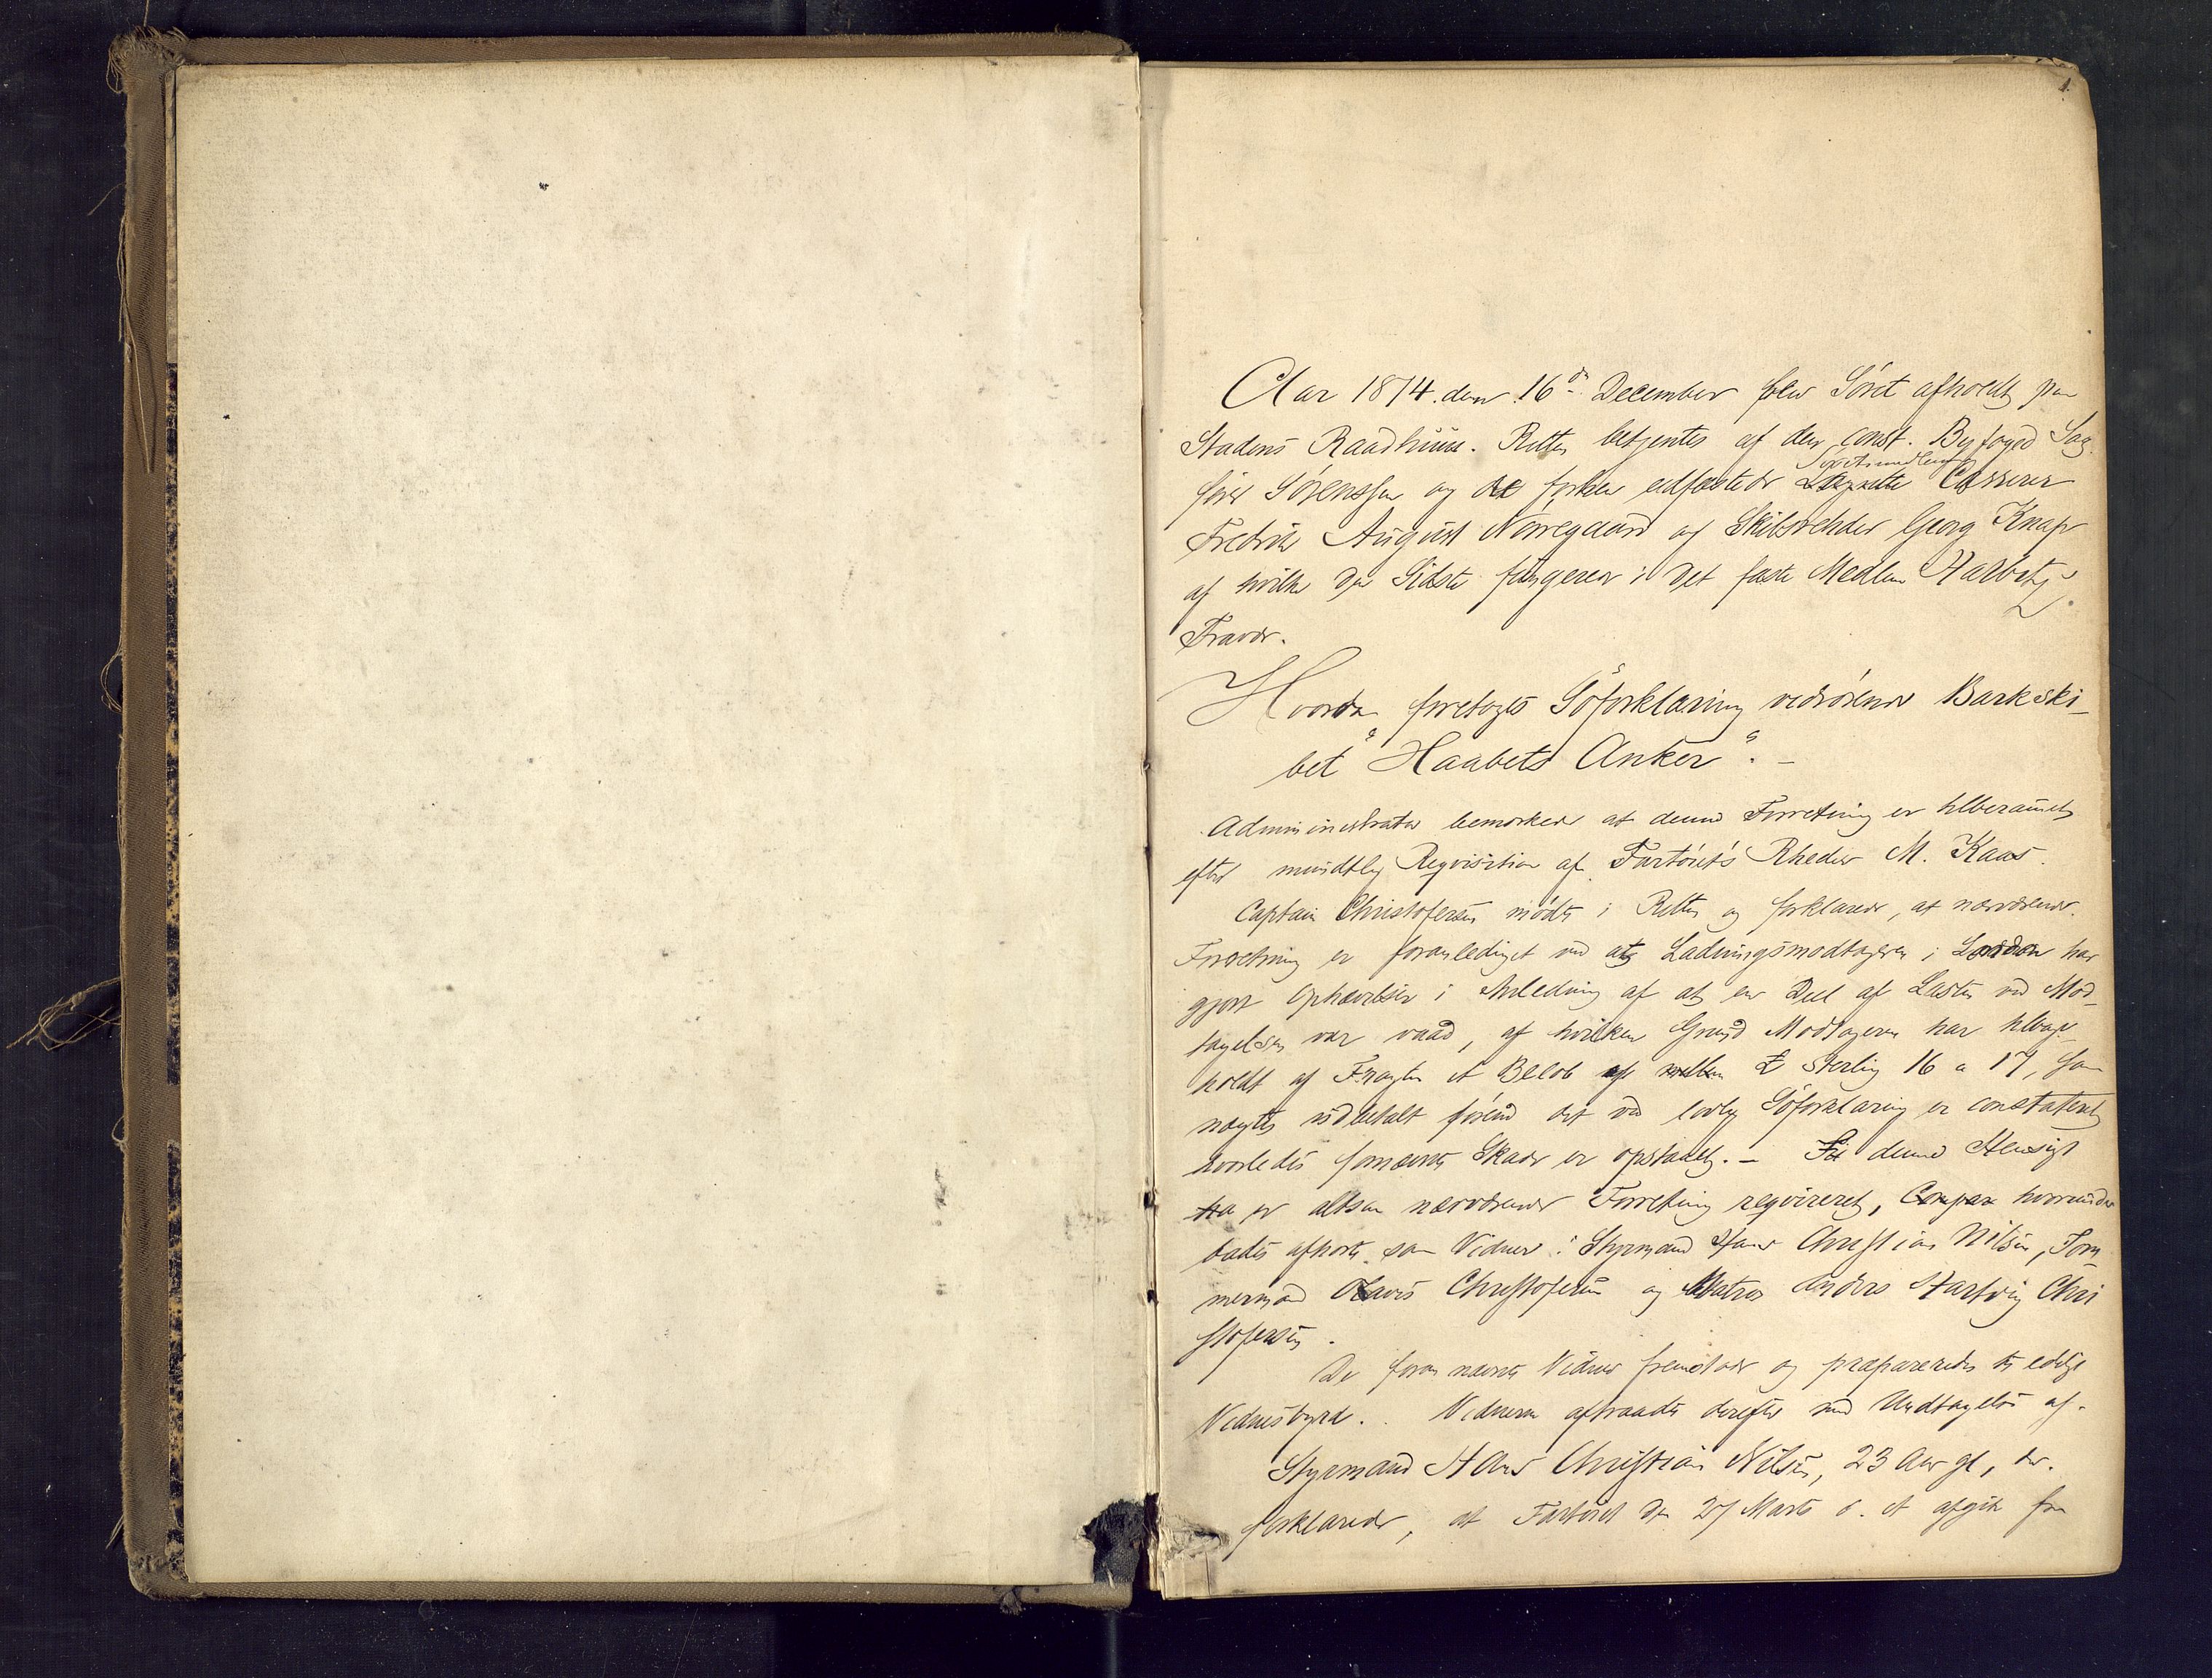 1.
Aar 1874 den 16de December blev Söret afholdt paa
Stadens Raadhuus. Retten betjentes af den const. Byfoged Sag-
förer Sörenssen og de forhen edfæstede Söretsmedlemmer
Fredrik August Nörregaard og Skibsrheder Georg Knap
af hvilke den Sidste fungerer i det faste Medlem
Fravær.
Hvorda foretoges Söforklaring vedrörende Barkski-
bet "Haabets Anker". -
Administrator bemærkede at denne Forretning er berammet
efter mundtlig Reqvisition af Fartöiets Rheder M. Kaas.
Captain Christofersen mödte i Retten og forklarede, at nærværende
Forretning er foranlediget ved at Ladningsmodtageren i London har
gjort Ophævelser i Anledning af at en Deel af Lasten ved Mod-
tagelsen var vaad, af hvilken Grund Modtageren har tilbage-
holdt af Fragten et Belöb af £ Sterling 16 a 17, som
nægtes udbetalt förend det ved lovlig Söforklaring er constateret
hvorledes fornævnte Skade er opstaaet. - I denne Hensigt
er altsaa nærværende Forretning reqvireret, hvorunder
bades afhörte som Vidner: Styrmand Hans Christian Nilsen, Töm-
mermand Olaves Christofersen og Matros Anders Hartvig Chri
stofersen.
De foran nævnte Vidner fremstode og præpareredes til edelige
Vidnesbyrd. Vidnerne aftraadte derefter med Undtagelse af
Styrmand Hans Christian Nilsen, 23 Aar gl, der
forklarede, at Fartöiet den 27 Marts d. A afgik fra